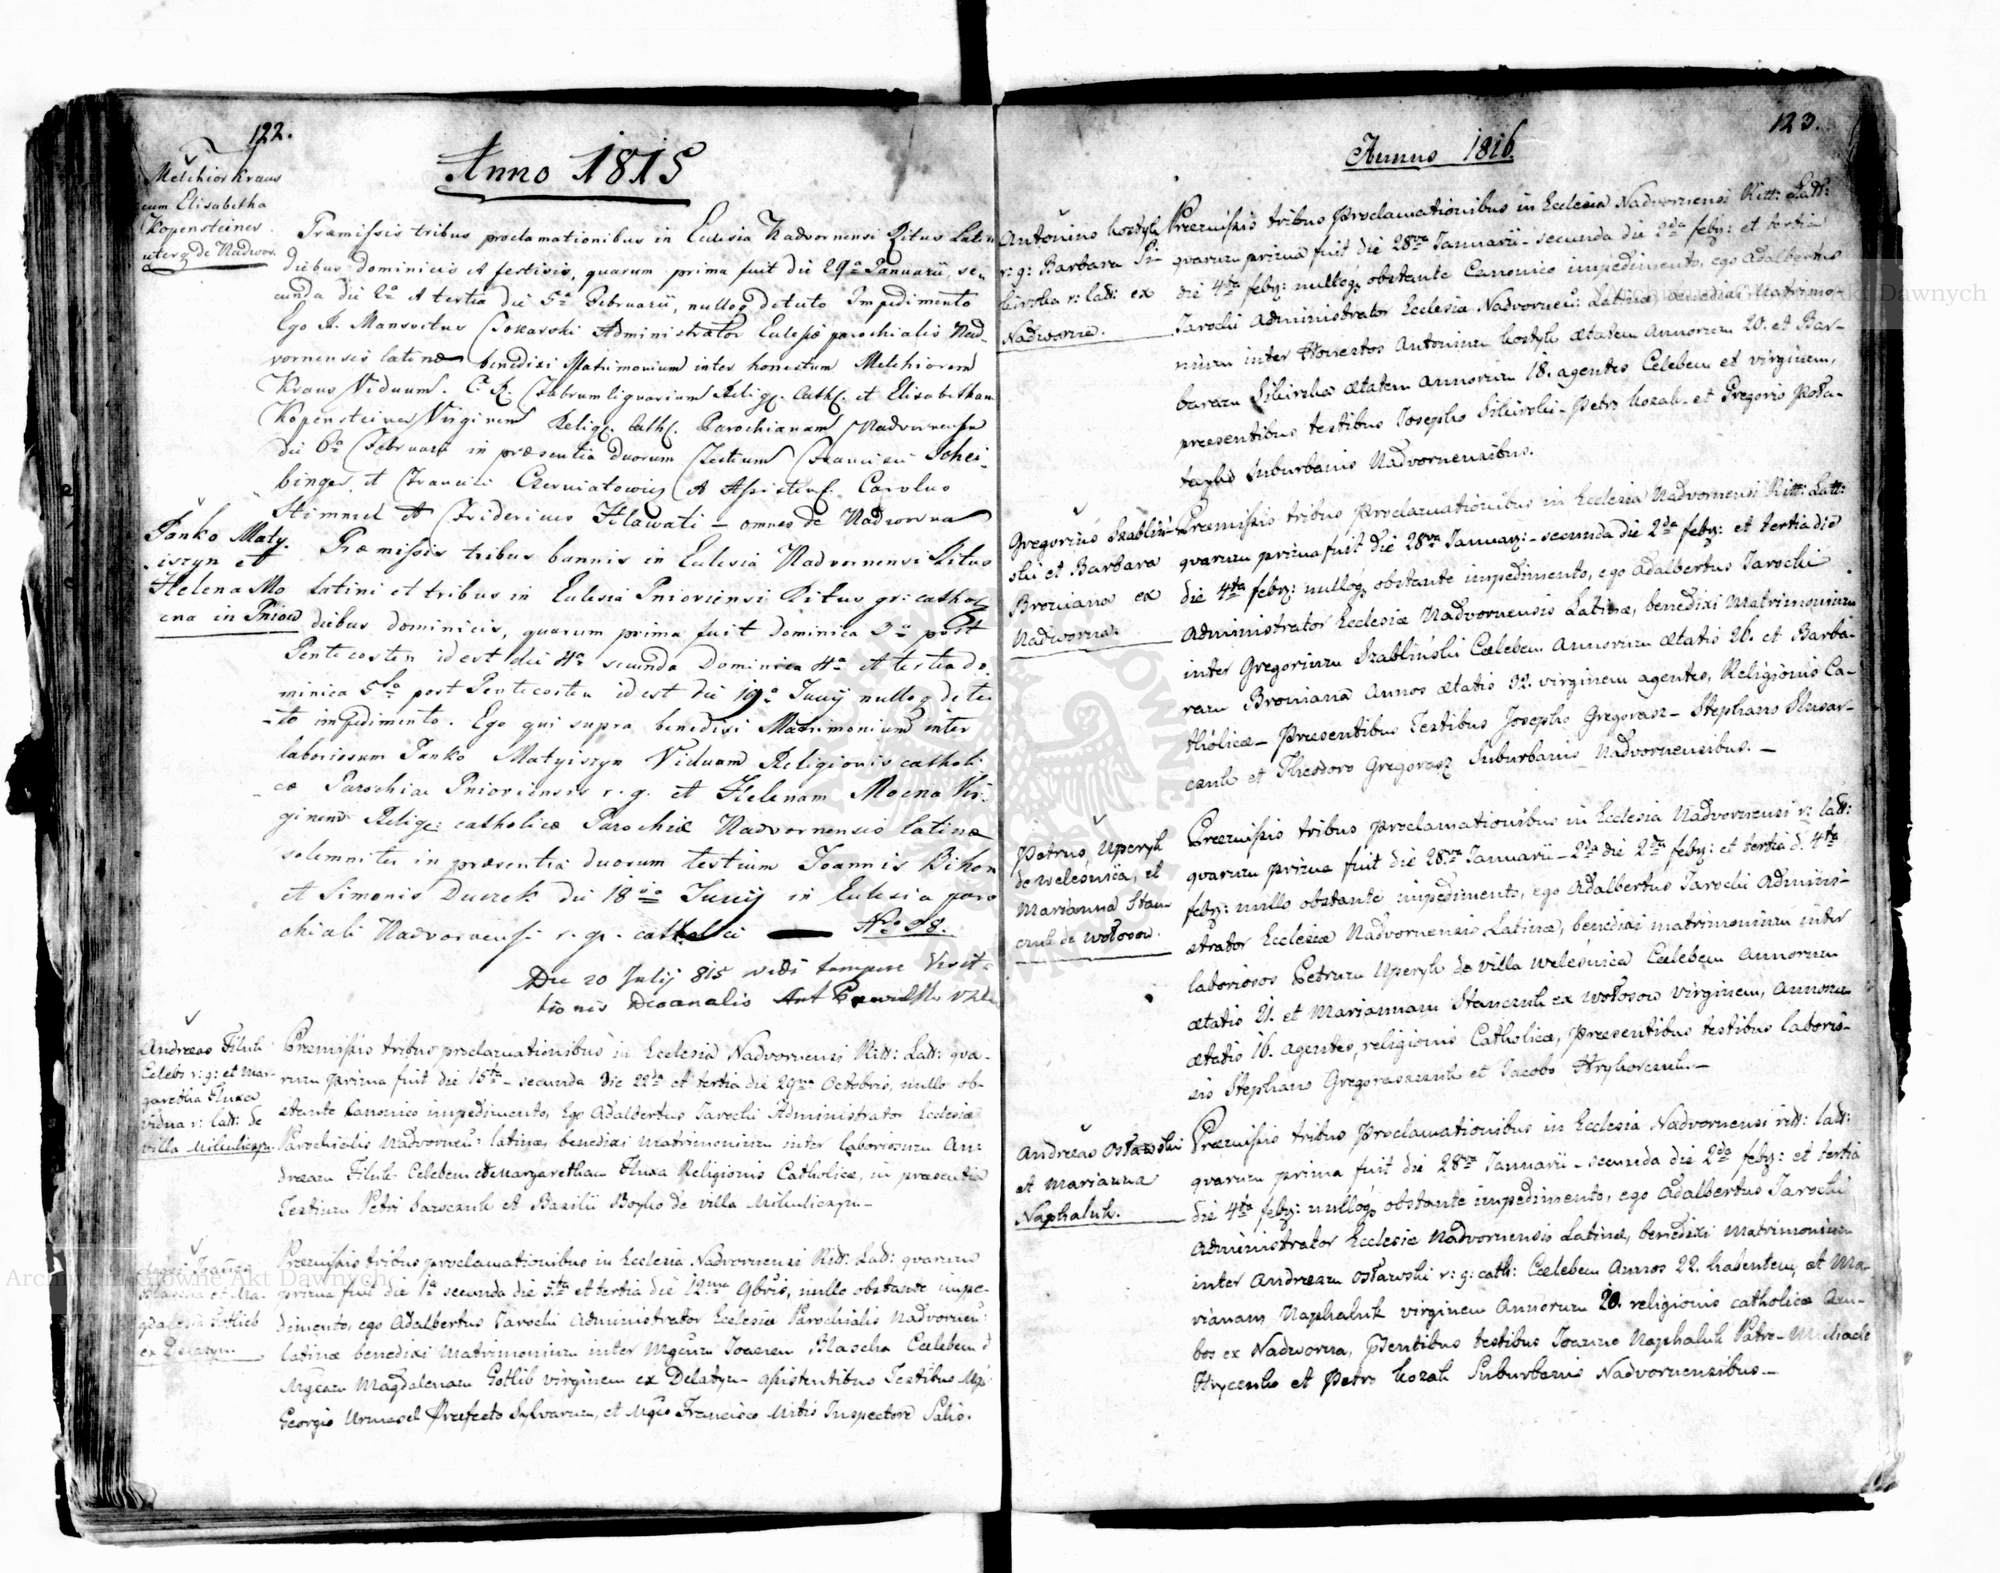 122.
Anno 1815
Melchior Kraus
cum Elisabetha
Kopensteiner
uterq de Nadwor.
Præmissis tribus proclamationibus in Eclesia Nadvornensi Ritus Latini
diebus dominicis et festivis, quarum prima fuit die 29a Januarii, se-
cunda die 2a et tertia die 5a Februarii, nulloq detecto Impedimento
Ego Mansvetus Administrator Eclesiæ parochialis Nad-
vornensis latinæ benedixi Matrimonium inter honestum Melchiorem
Kraus Viduum. C. R. Fabrum lignarium Religs. Cathc. et Elisabetham
Kopensteiner Virginem Religs. Cathc. Parochianam Nadvornensem
die 6a Februarii in præsentia duorum Testium Francisci Schei-
binger et Francisci Czerniatowicz et Assistens. Carolus
Himmel et Fridericus Hlawati – omnes de Nadworna
Janko Maty-
iszyn et
Helena Mo
cna in Pniow
Præmissis tribus bannis in Eclesia Nadvornensi Ritus
latini et tribus in Eclesia Pnioviensi Ritus gr: cathol
diebus dominicis, quarum prima fuit Dominica 3a post
Pentecosten id est die 4a secunda Dominica 4a et tertia do-
minica 5ta post Pentecosten id est die 19a Junij nulloq dete-
cto impedimento. Ego qui supra benedixi Matrimonium inter
laboriosum Janko Matyiszyn Viduum Religionis catholi-
cæ Parochiæ Pnioviensis r. g. et Helenam Mocna Vir-
ginem Religs: catholicæ Parochiæ Nadvornensis latinæ
solemniter in præsentia duorum testium Joannis Bihon
et Simonis Duczek die 18io Junij in Eclesia paro
chiali Nadvornensi r. g. catholici
Die 20 Julij 815 vidi tempore Visit-
tionis Decanalis Ant
Andreas Filuk
Celebs r: g: et Mar-
garetha Fluxa
vidua r: latt: de
villa Mikuliczyn.
Præmissis tribus proclamationibus in Ecclesia Nadvornensi Ritt: Latt: qva-
rum prima fuit die 15ta – secunda die 22da et tertia die 29na Octobris, nullo ob-
stante Canonico impedimento, Ego Adalbertus Tarochi Administrator Ecclesiæ
Parochialis Nadvorneñ: latinæ, benedixi Matrimonium inter laboriosum An-
dream Filuk Celebem et Margaretham Fluxa Religionis Catholicæ, in præsentia
Testium Petri Sawczuk et Basilii Boyko de villa Mikuliczyn.–
Blascha et Ma-
gdalena Gottlieb
ex Delatyn.
Præmissis tribus proclamationibus in Ecclesia Nadvornensi Ritt: Latt: qvarum
prima fuit die 1a secunda die 5ta et tertia die 12ma 9bris, nullo obstante impe-
dimento, ego Adalbertus Tarochi Administrator Ecclesiæ Parochialis Nadvorneñ:
latinæ benedixi Matrimonium inter Mgcum Joanem Blascha Cælebem et
Mgcam Magdalenam Gotlib virginem ex Delatyn – assistentibus Testibus Mgco
Georgio Urmasel Præfecto Sylvarum, et Mgco Francisco Mitis Inspectore Salis.
123.
Annus 1816.
Antonius Kostyk
r: g: Barbara Si-
leirska r: latt: ex
Nadworna.
Præmissis tribus Proclamationibus in Ecclesia Nadvornensi Ritt: Latt:
qvarum prima fuit die 28va Januarii – secunda die 2da febr: et tertia
die 4ta febr: nulloq obstante Canonico impedimento, ego Adalbertus
Tarochi Administrator Ecclesiæ Nadvorneñ: Latinæ, benedixi Matrimo-
nium inter Honestos Antonium Kostyk ætatem Annorum 20. et Bar-
baram Sileirska ætatem Annorum 18. agentes, Celebem et virginem,
præsentibus testibus Josepho Sileirski – Petro Kozak – et Gregorio Pota-
Suburbanis Nadvornensibus.
Gregorius Szabliń-
ski et Barbara
Broniana ex
Nadworna.
Præmissis tribus Proclamationibus in Ecclesia Nadvornensi Ritt: Latt:
qvarum prima fuit die 28va Januar: – secunda die 2da febr: et tertia die
die 4ta febr: nulloq obstante impedimento, ego Adalbertus Tarochi
Administrator Ecclesiæ Nadvornensis Latinæ, benedixi Matrimonium
inter Gregorium Szabliński Cælebem Annorum ætatis 26. et Barba-
ram Broniana Annos ætatis 32. virginem agentes, Religionis Ca-
tholicæ – Præsentibus Testibus Josepho Gregorasz – Stephano Slusar-
czuk et Theodoro Gregorasz Suburbanis Nadvornensibus. –
Petrus Uperyk
de Welesnica, et
Marianna Stan-
czuk de Wołosow.
Præmissis tribus Proclamationibus in Ecclesia Nadvornensi r: latt:
qvarum prima fuit die 28va Januarii – 2da die 2da febr: et tertia d. 4ta
febr: nullo obstante impedimento, ego Adalbertus Tarochi Adminis-
trator Ecclesiæ Nadvornensis Latinæ, benedixi matrimonium inter
laboriosos Petrum Uperyk de villa Welesnica Cælebem Annorum
ætatis 21. et Mariannam Stanczuk ex Wołosow virginem, Annorum
ætatis 16. agentes, religionis Catholicæ, Præsentibus testibus laborio-
sis Stephano Gregoraszczuk et Jacobo Hryhorczuk.–
Andreas Osławski
et Marianna
Naphaluk.
Præmissis tribus Proclamationibus in Ecclesia Nadvornensi ritt: latt:
qvarum prima fuit die 28va Januarii – secunda die 2da febr: et tertia
die 4ta febr: nulloq obstante impedimento, ego Adalbertus Tarochi
Administrator Ecclesiæ Nadvornensis Latinæ, benedixi Matrimonium
inter Andream Osławski r: g: cath: Cælebem Annos 22. habentem, et Ma-
rianam Naphaluk virginem Annorum 20. religionis catholicæ Am-
bos ex Nadworna, Ptentibus testibus Joanne Naphaluk Patre – Michaele
Hrycenko et Petro Kozak Suburbanis Nadvornensibus.–
Archiwum Główne Akt Dawnych
Archiwum Główne Akt Dawnych